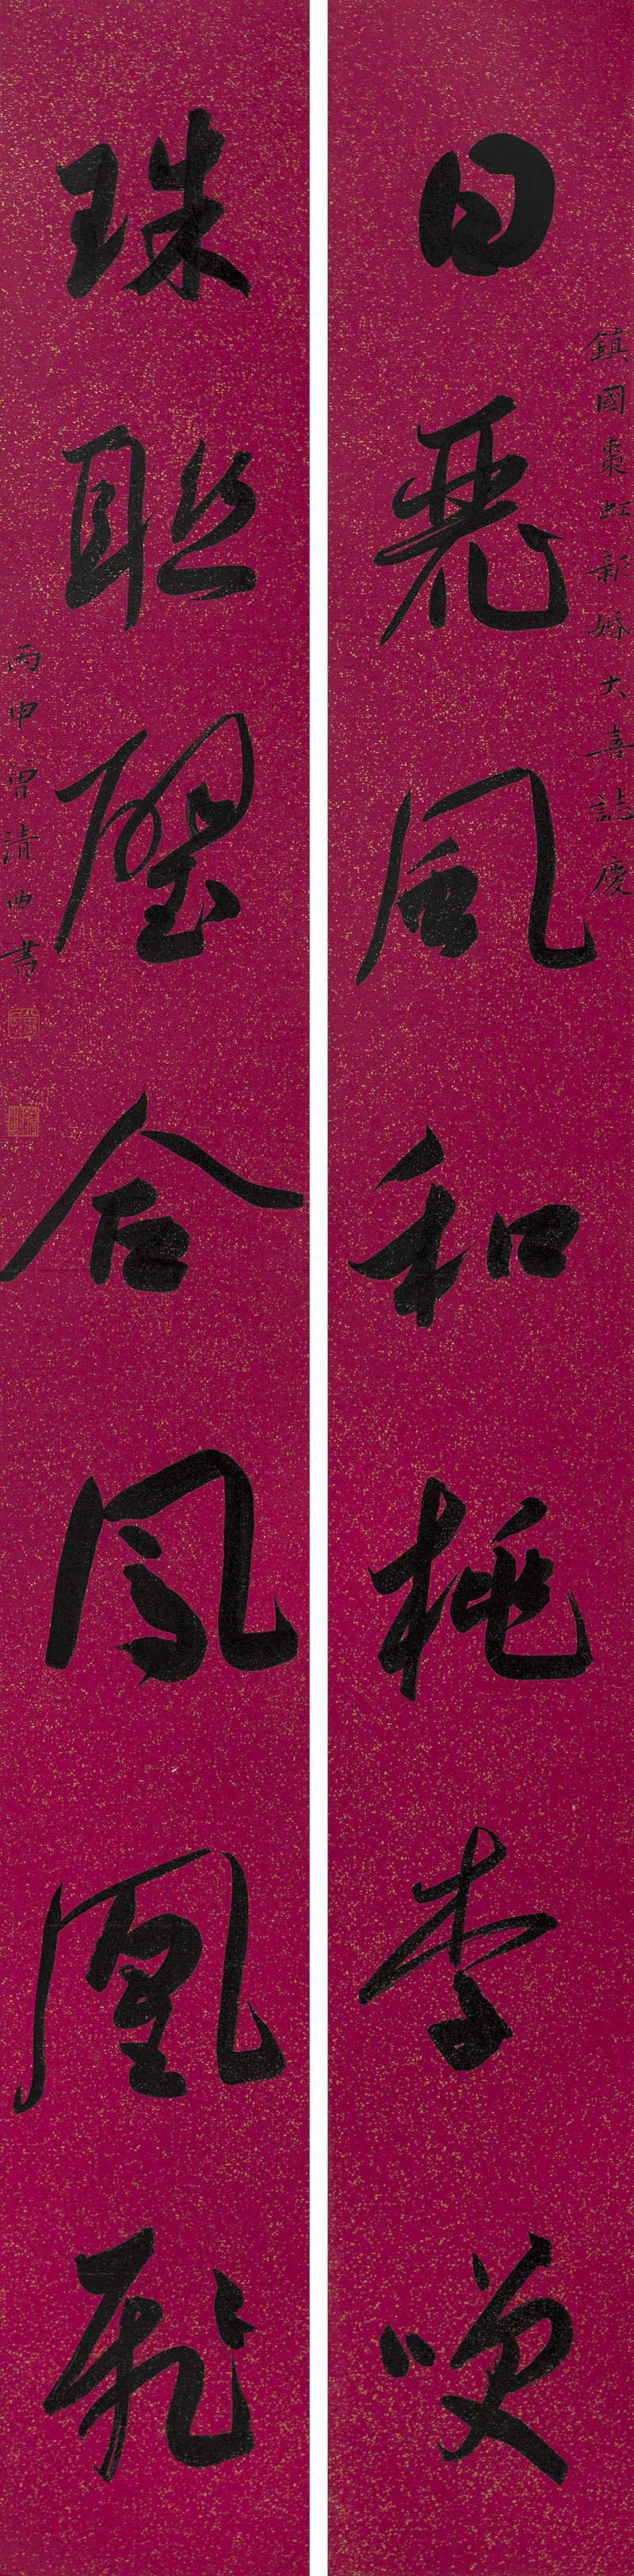 鎮國棗虹新婚大喜誌慶
日麗風和桃李咲
珠聯璧合鳳凰飛
丙申曾清曲書